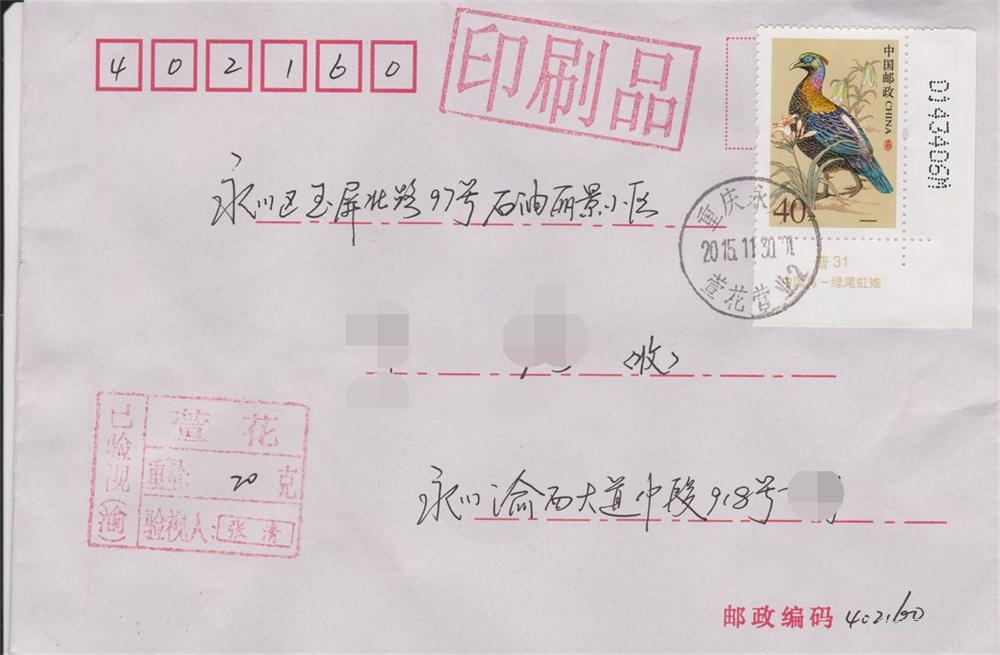 402160
印刷品
中国邮政 CHINA
40分
0143406M
永川区玉屏北路97号石油丽景小区
重庆永
2015.11.30
萱花营业2
普31
绿尾虹雉
(收)
已验视(渝)
萱花
重量: 20 克
验视人: 张清
永川渝西大道中段918号
邮政编码 402160